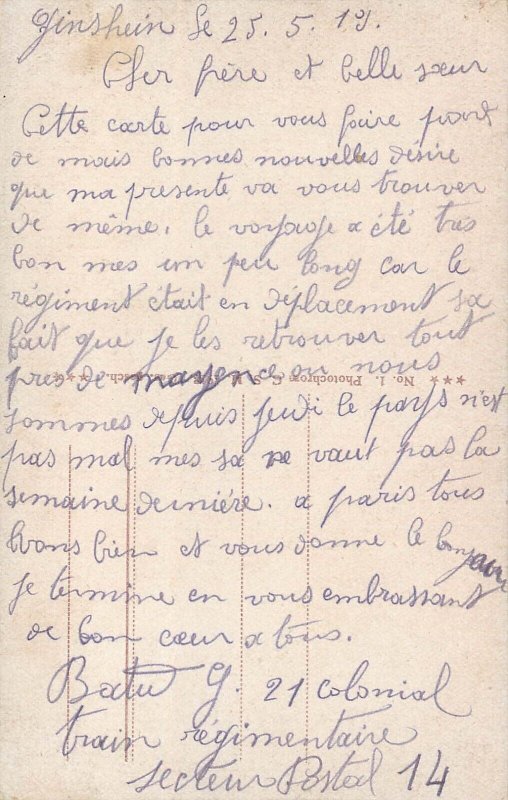 Ginsheim le 25. 5. 19.
Cher frère et belle sœur
Cette carte pour vous faire part
de mais bonnes nouvelles désire
que ma presente va vous trouver
de même, le voyage a été très
bon mes un peu long car le
régiment était en déplacement sa
fait que je les retrouver tout
pres de mayence ou nous
sommes depuis jeudi le pays n'est
pas mal mes sa ne vaut pas la
semaine dernière. a paris tous
vons bien et vous donne le bonjour
je termine en vous embrassant
de bon cœur a tous.
G. 21 colonial
train régimentaire
secteur Postal 14
★★★ No. 1. Photochrom